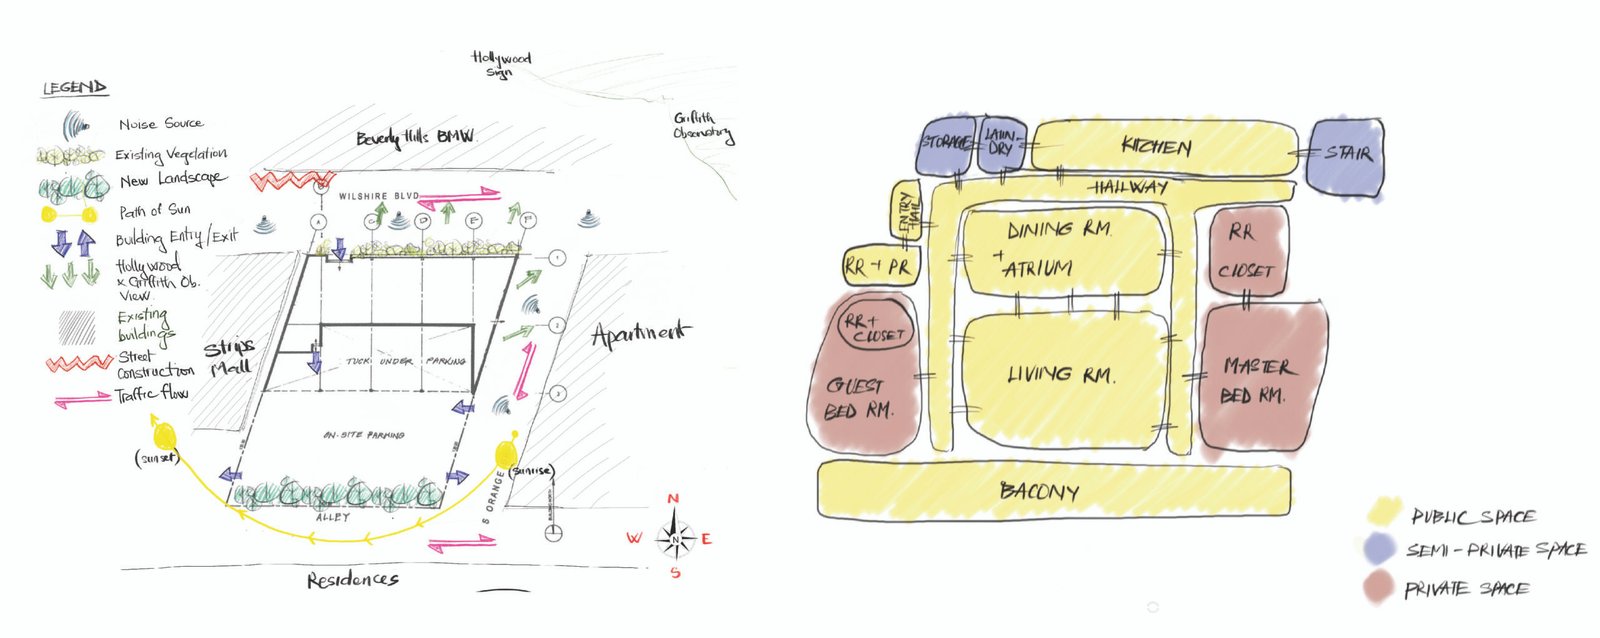 LEGEND
Noise Source
Existing Vegetation
New Landscape
Path of Sun
Building Entry/Exit
Hollywood
x Griffith Ob.
View.
Existing
buildings
Street
Construction
Traffic flow
Hollywood
Sign
Griffith
Observatory
Beverly Hills BMW.
WILSHIRE BLVD
A
C
D
E
F
1
2
3
Strips
Mall
Apartment
TUCK UNDER PARKING
ON-SITE PARKING
(sunset)
(sunrise)
S ORANGE
ALLEY
Residences
N
W
E
S
N
STORAGE
LAUN-
DRY
KITCHEN
STAIR
HALLWAY
ENTRY
HALL
DINING RM.
+
ATRIUM
RR
CLOSET
RR + PR
RR+
CLOSET
GUEST
BED RM.
LIVING RM.
MASTER
BED RM.
BACONY
PUBLIC SPACE
SEMI-PRIVATE SPACE
PRIVATE SPACE